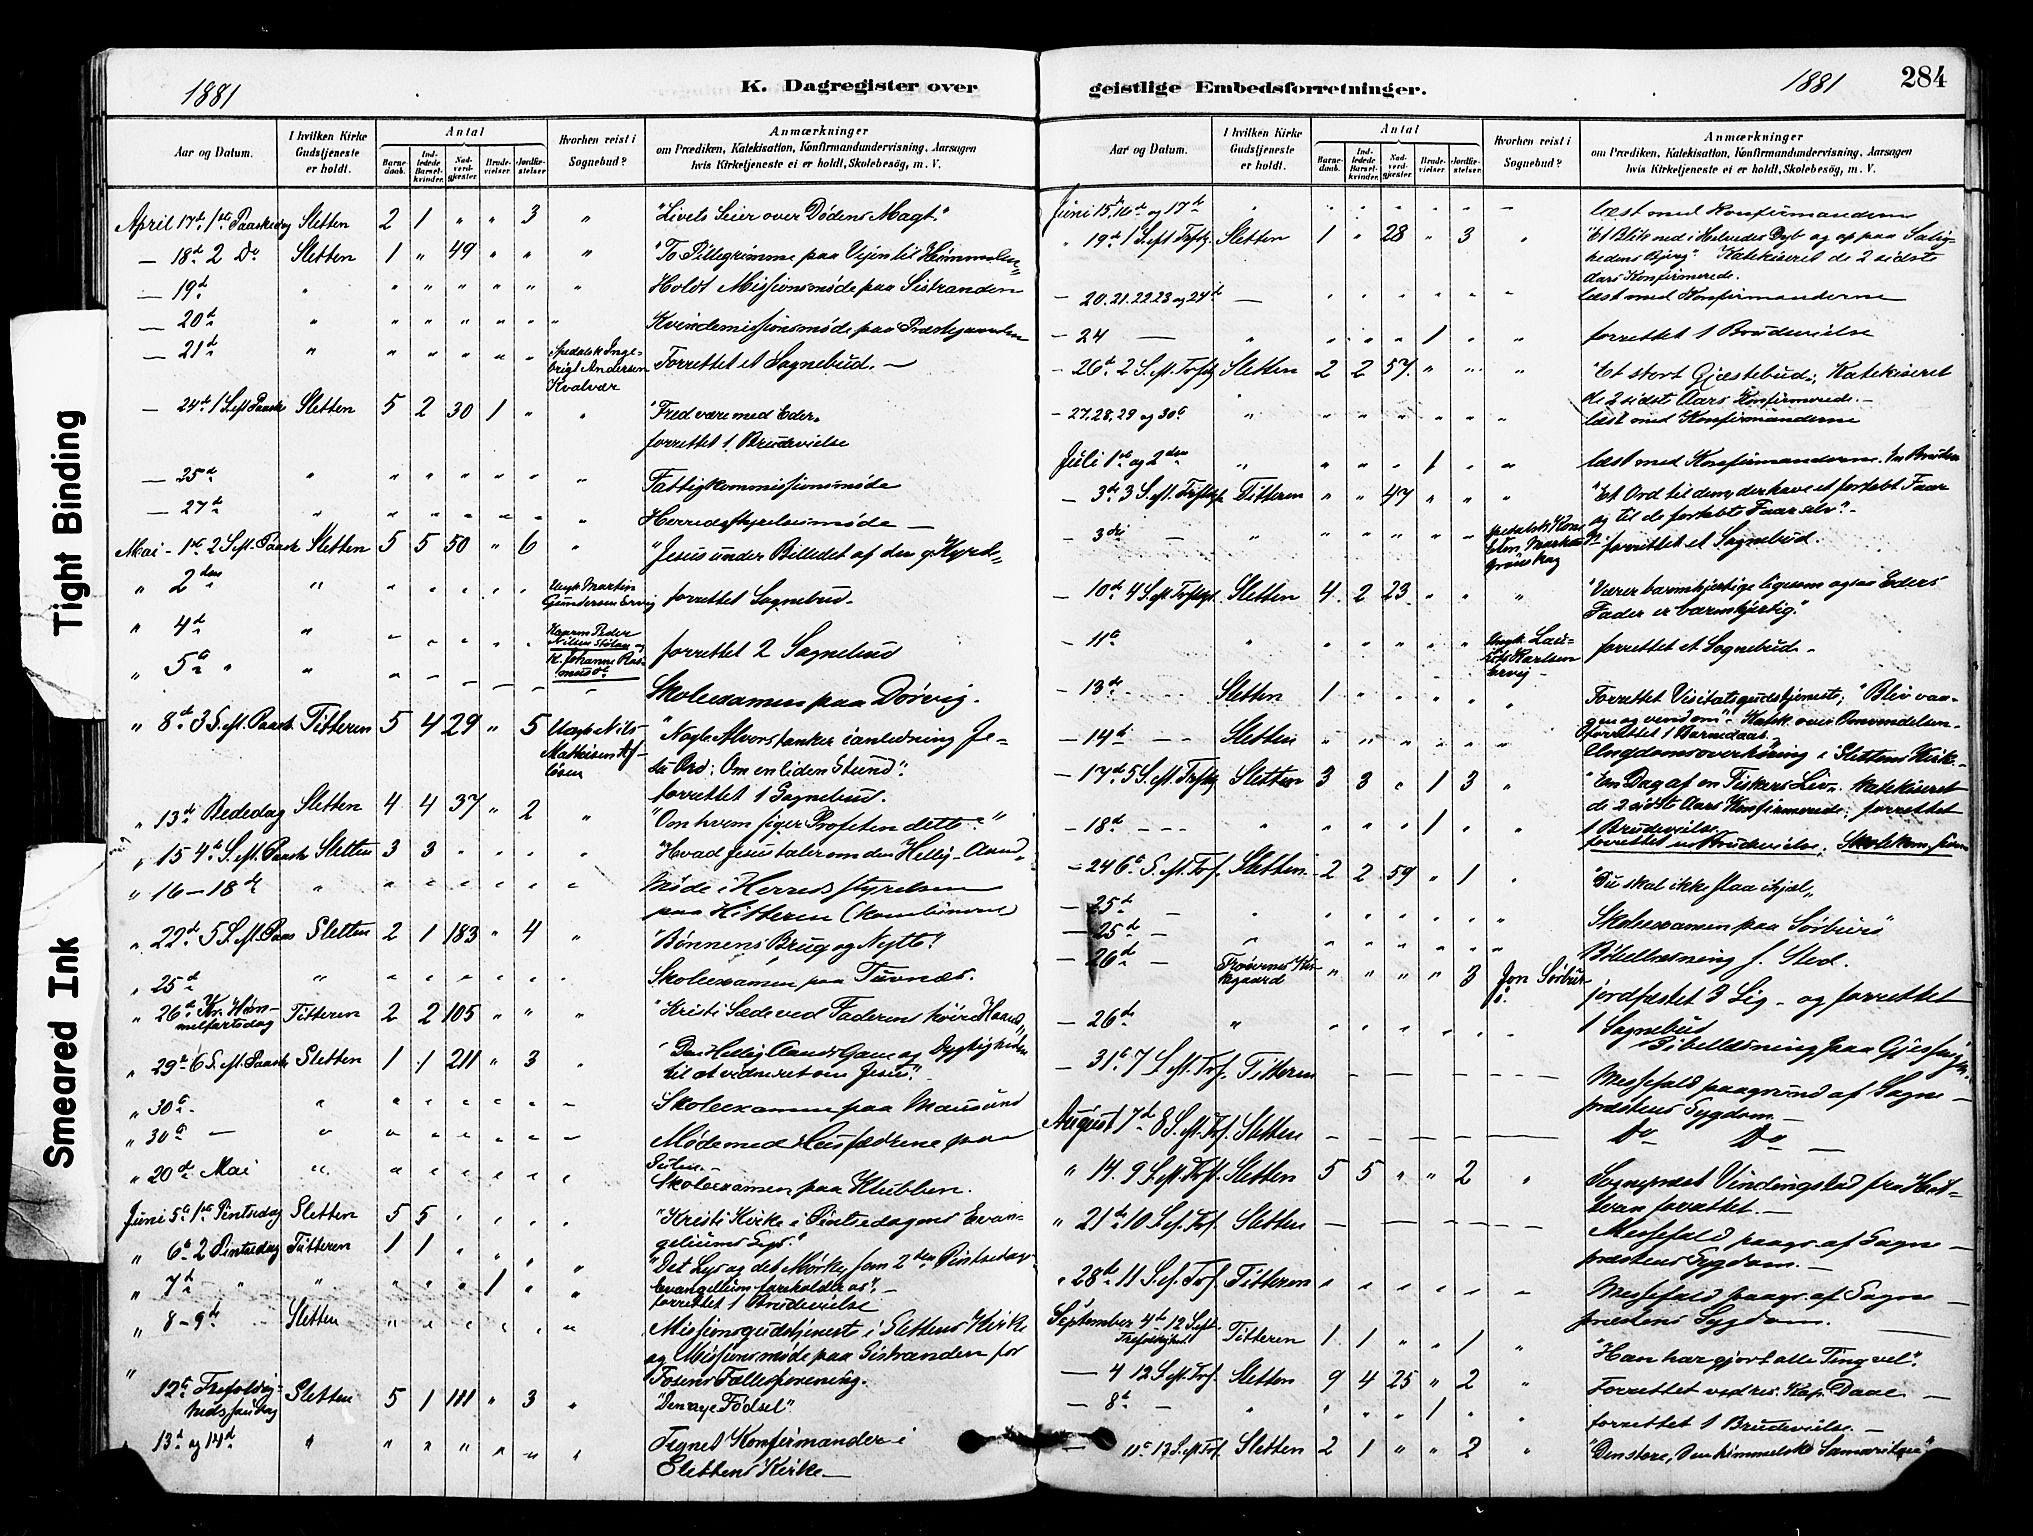 1881
K. Dagregister over
Aar og Datum.
I hvilken Kirke Gudstjeneste er holdt.
Antal
Barnedaab.
Indledede Barselkvinder.
Nadverdgjester.
Brudevielser.
Jordfæstelser.
Hvorhen reist i Sognebud?
Anmærkninger
om Prædiken, Katekisation, Konfirmandundervisning, Aarsagen
hvis Kirketjeneste ei er holdt, Skolebesøg, m. V.
April 17de 1ste Paaskedag Sletten 2 1 " " 3 " "Livets Seier over Dødens Magt."
— 18de 2 Do Sletten 1 " 49 " " " "To Pillegrimme paa Veien til Himmelen"
— 19de " " " " " " " Holdt Missionsmøde paa Sistranden
— 20de " " " " " " " Kvindemissionsmøde paa Præstegaarden
— 21de " " " " " " Spedalsk Ingebrigt Andersen Kvalvær Forrettet et Sognebud. —
— 24de 1 S. eft. Paaske Sletten 5 2 30 1 " " "Fred være med Eder"
forrettet 1 Brudevielse
— 25de " " " " " " " Fattigkommissionsmøde
— 27de " " " " " " " Herredsstyrelsemøde —
Mai — 1ste 2 S. eft. Paaske Sletten 5 5 50 " 6 " "Jesus under Billedet af den g. Hyrde"
" 2den " " " " " " Martin Gundersen Ervig forrettet Sognebud.
" 4de " " " " " " Peder Nilsen
" 5te " " " " " " K. Johanna Rasmusdt. forrettet 2 Sognebud
Skoleexamen paa Dørvig.
" 8de 3 S. eft. Paaske Titteren 5 4 29 " 5 Nils Mathisen "Nogle Alvorstanker i anledning Jesu Ord: Om en liden Stund".
forrettet 1 Sognebud.
" 13de Bededag Sletten 4 4 37 " 2 " "Om hvem siger Profeten dette?"
" 15 4de S. eft. Paaske Sletten 3 3 " " " " "Hvad Jesus taler om den Hellig-Aand"
" 16—18de " " " " " " " Møde i Herredsstyrelsen
paa Hitteren (kombineret)
" 22de 5 S. eft. Paas Sletten 2 1 183 " 4 " "Bønnens Brug og Nytte".
" 25de " " " " " " " Skoleexamen paa Tuvnæs.
" 26de Kr. Himmelfartsdag Titteren 2 2 105 " " " "Kristi Sæde ved Faderens høire Haand"
" 29de 6 S. eft. Paaske Sletten 1 1 211 " 3 " "Den Hellig Aands Gave og Dygtigheden
til at vidne ret om Jesu".
" 30te " " " " " " — Skoleexamen paa Mausund
" 30te — " " " " " " — Møde med Husfædrene paa
Sulen —
" 20de Mai " " " " " " " Skoleexamen paa Klubben.
Juni 5te 1ste Pintsedag Sletten 5 5 " " " " "Kristi Kirke i Pintsedagens Evangeliums Lys."
" 6te 2 Pintsedag Titteren 1 1 " " " " "Det Lys og det Mørke, som 2den Pintsedags
Evangelium foreholder os". —
" 7de " " " " " 1 " " forrettet 1 Brudevielse
" 8—9de Sletten " " " " " " Missionsgudstjeneste i Slettens Kirke
og Missionsmøde paa Sistranden for
Fosens Fællesforening.
" 12te Trefoldighedssøndag Sletten 5 1 111 " 3 " "Den nye Fødsel"
13de og 14de " " " " " " " Tegnet Konfirmander i
Slettens Kirke —
geistlige Embedsforretninger.
1881
284
Aar og Datum.
I hvilken Kirke Gudstjeneste er holdt.
Antal
Barnedaab.
Indledede Barselkvinder.
Nadverdgjester.
Brudevielser.
Jordfæstelser.
Hvorhen reist i Sognebud?
Anmærkninger
om Prædiken, Katekisation, Konfirmandundervisning, Aarsagen
hvis Kirketjeneste ei er holdt, Skolebesøg, m. V.
Juni 15, 16de og 17de " " " " " " " læst med Konfirmanderne
" 19de 1 S. eft. Trftg. Sletten 1 " 28 " 3 " "Et Blik ned i Helvedes Dyb og op paa Saligheden Bjerg". Katekiseret de 2 sidste
Aars Konfirmerede.
— 20. 21. 22. 23 og 24de — " " " " " " læst med Konfirmanderne
— 24 — " " " " 1 " " forrettet 1 Brudevielse
— 26de 2 S. eft. Trftg. Sletten 2 2 57 " " " "Et stort Gjæstebud". Katekiseret
de 2 sidste Aars Konfirmerede. —
— 27. 28. 29 og 30te " " " " " " " læst med Konfirmanderne
Juli 1ste og 2den " " " " 1 " " læst med Konfirmanderne. En Brudev.
— 3de 3 S. eft. Trftg. Titteren " " 47 " " " "Et Ord til dem, der have et fortabt Faar
og til de fortabte Faar selv". —
— 3die — " " " " " " Spedalsk Kone forrettet et Sognebud.
— 10de 4 S. eft. Trftg. Sletten 4 2 23 " " " "Værer barmhjertige ligesom ogsaa Eders
Fader er barmhjertig."
— 11te " " " " " " Ungk. Laurits Karlsen Ervig — forrettet et Sognebud. —
— 13de Sletten 1 " " " " " Forrettet Visitatsgudstjeneste; "Bliv vaagen og vend om". Katek. over Omvendelsen.
forrettet 1 Barnedaab
— 14de — — Sletten " " " " " " Ungdomsoverhøring i Slettens Kirke.
— 17de 5 S. eft. Trftg. Sletten 3 3 " 1 3 " "En Dag af en Fiskers Liv". Katekiseret
de 2 sidste Aars Konfirmerede; forrettet
1 Brudevielse
— 18de — — — " " " " 1 " " forrettet en Brudevielse; Skolekom.
— 24 6te S. eft. Tref. Sletten 2 2 59 " 1 " "Du skal ikke slaa ihjel"
— 25de — " " " " " " " Skoleexamen paa Sørburø
— 25de — " " " " " " " Bibellæsning s. Sted.
— 26de — Froøernes Kirkegaard " " " " 3 Jon Sørburø jordfæstet 3 Lig — og forrettet
1 Sognebud
— 26de " " " " " " " Bibellæsning paa Gjæssingen.
— 31te 7 S. eft. Tref. Titteren — — — — — — Messefald paagrund af Sognepræstens Sygdom —
August 7de 8 S. eft. Tref. Sletten — — — — — — Do Do —
" 14. 9 S. eft. Tref. Sletten 5 5 " " 2 " Sognepræst Vindingstad fra Hitteren forrettet. —
" 21de 10 S. ef. Tref. Sletten — — — — — — Messefald paagr. af Sognepræstens Sygdom. —
" 28de 11 S. ef. Tref. Titteren " " " " " " Messefald paagr. af Sognepræstens Sygdom. —
September 4de 12 S. eft. Trefoldighed Titteren 1 1 " " 1 " "Han har gjort alle Ting vel".
— 4 12 S. eft. Tref. Sletten 9 4 25 " 2 " Forrettet ved res. Kap. Daae —
— 8de — " " " " 1 " " forrettet 1 Brudevielse —
— 11te 13 S. eft. Tref. Sletten 2 1 " " 2 " "Den store, den himmelske Samaritan"
Tight Binding
Smeared Ink